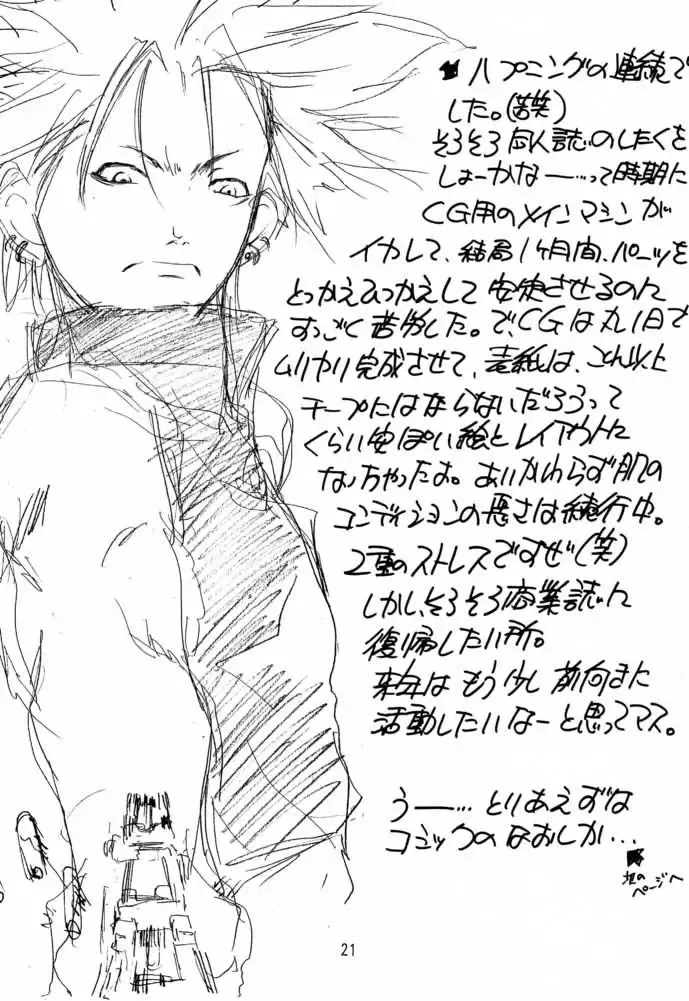 ハプニングの連続で
した。(苦笑)
そろそろ同人誌のしたくを
しょーかなー…って時期に
CG用のメインマシンが
イカレて、結局1ヶ月間、パーツを
とっかえひっかえして安定させるのに
すっごく苦労した。で、CGは丸1日で
ムリヤリ完成させて、表紙は、これ以上
チープにはならないだろうって
くらい安ぽい絵とレイアウトに
なっちゃったよ。あいかわらず肌の
コンディションの悪さは続行中。
2重のストレスですぜ(笑)
しかし、そろそろ商業誌に
復帰したい所。
来年はもう少し前向きに
活動したいなーと思ってマス。
うー…とりあえずは
コミックのなおしか…
のページへ
21